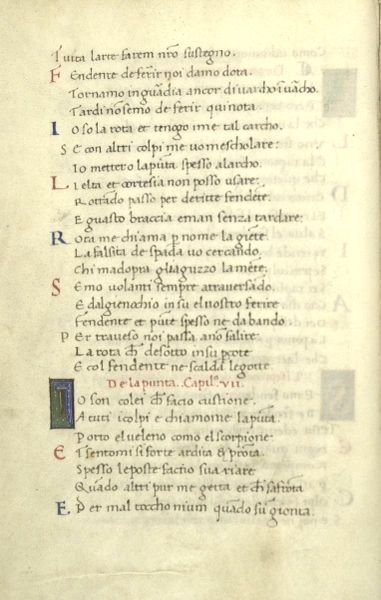 Tuita larte farem nr̃o sustegno.
F endente de ferir noi damo dota.
Tornamo inguãdia ancor di uarcho ĩ uãcho.
Tardi nõ semo de ferir qui nota.
I o so la rota et tengo ime tal carcho.
S e con altri colpi me uo mescholare:
Io mettero la pũta spesso alarcho.
L i elta et cortesia non posso usare:
Rottãdo passo per deritte fendẽte:
E guasto braccia e man senza tardare:
R ota me chiama p nome la giẽte.
La falsita de spada uo cercando.
Chi madopra gliaguzzo la mẽte:
S emo uolanti sempre atrauersãdo.
E dal gienocchio in su el nostro ferire
Fendente et pũte spesso ne da bando.
P er trauerso noi passa sãno salire:
La rota ch̃ de sotto in su p̃cote
E col fendente ne scalda le gotte.
De la punta. Capil̃o. vii.
I o son colei ch̃ facio custione.
A tuti i colpi e chiamome la pũta.
Porto el ueleno como el scorpione:
E t sentomi si forte ardita & p̃rota.
Spesso le poste facñō sua riare
Quãdo altri pur me getta et ch̃ sa frota
E per mal toccho nium quãdo sũ gionta.